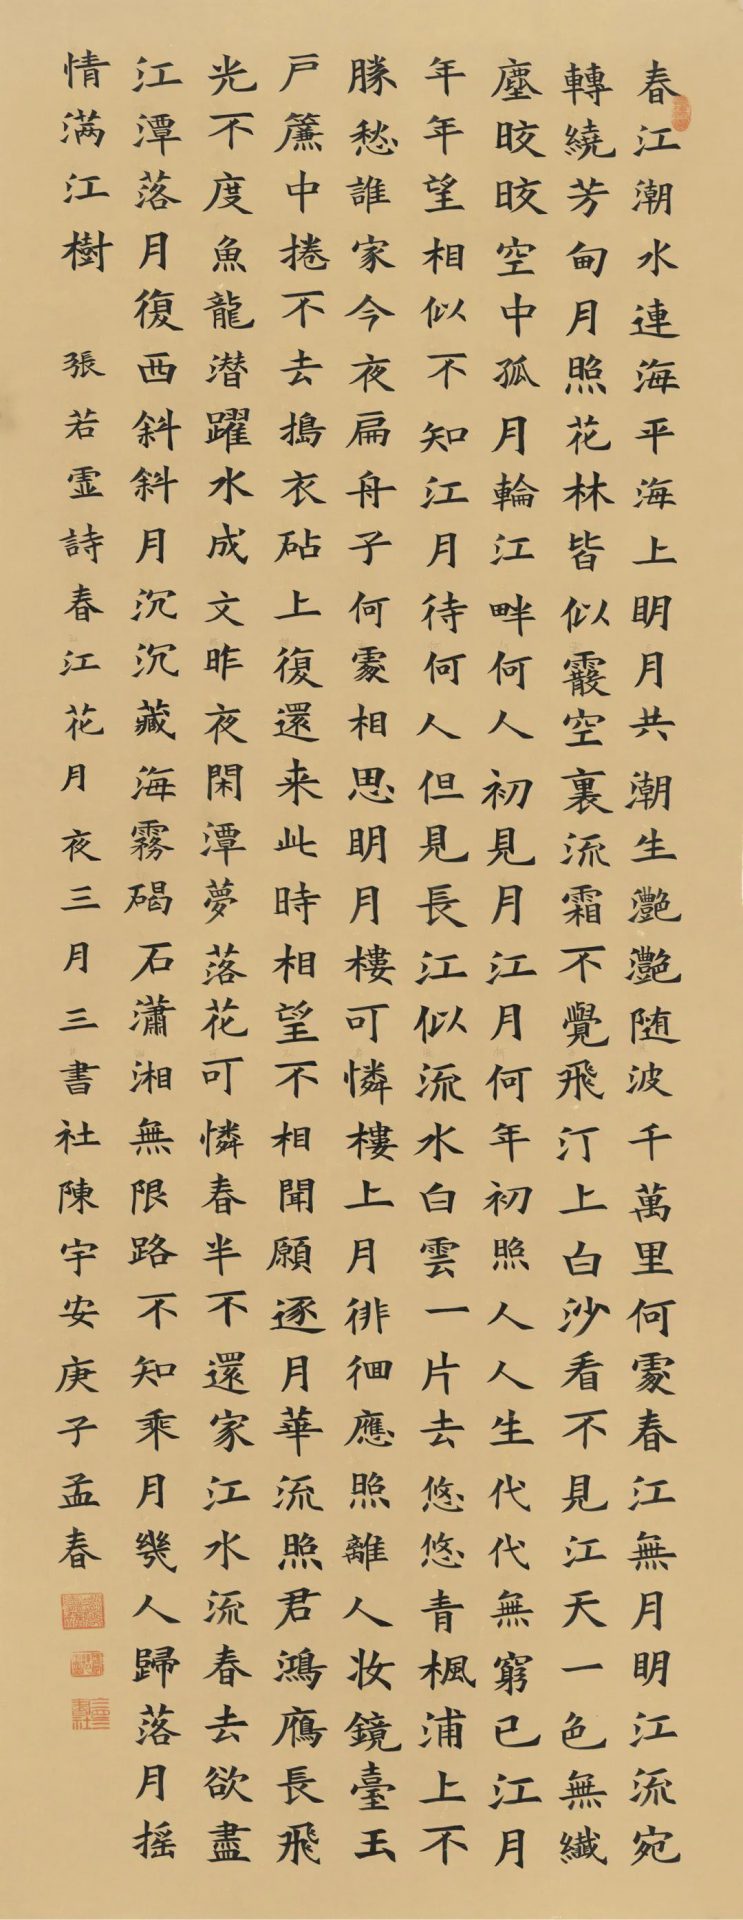 春江潮水連海平海上明月共潮生灧灧随波千萬里何處春江無月明江流宛
轉繞芳甸月照花林皆似霰空裏流霜不覺飛汀上白沙看不見江天一色無纖
塵晈晈空中孤月輪江畔何人初見月江月何年初照人人生代代無窮已江月
年年望相似不知江月待何人但見長江似流水白雲一片去悠悠青楓浦上不
勝愁誰家今夜扁舟子何處相思明月樓可憐樓上月徘徊應照離人妆鏡臺玉
戸簾中捲不去搗衣砧上復還来此時相望不相聞願逐月華流照君鴻鴈長飛
光不度魚龍潜躍水成文昨夜閑潭夢落花可憐春半不還家江水流春去欲盡
江潭落月復西斜斜月沉沉藏海霧碣石瀟湘無限路不知乘月幾人歸落月摇
情满江樹 張若虛詩春江花月夜三月三書社陳宇安庚子孟春